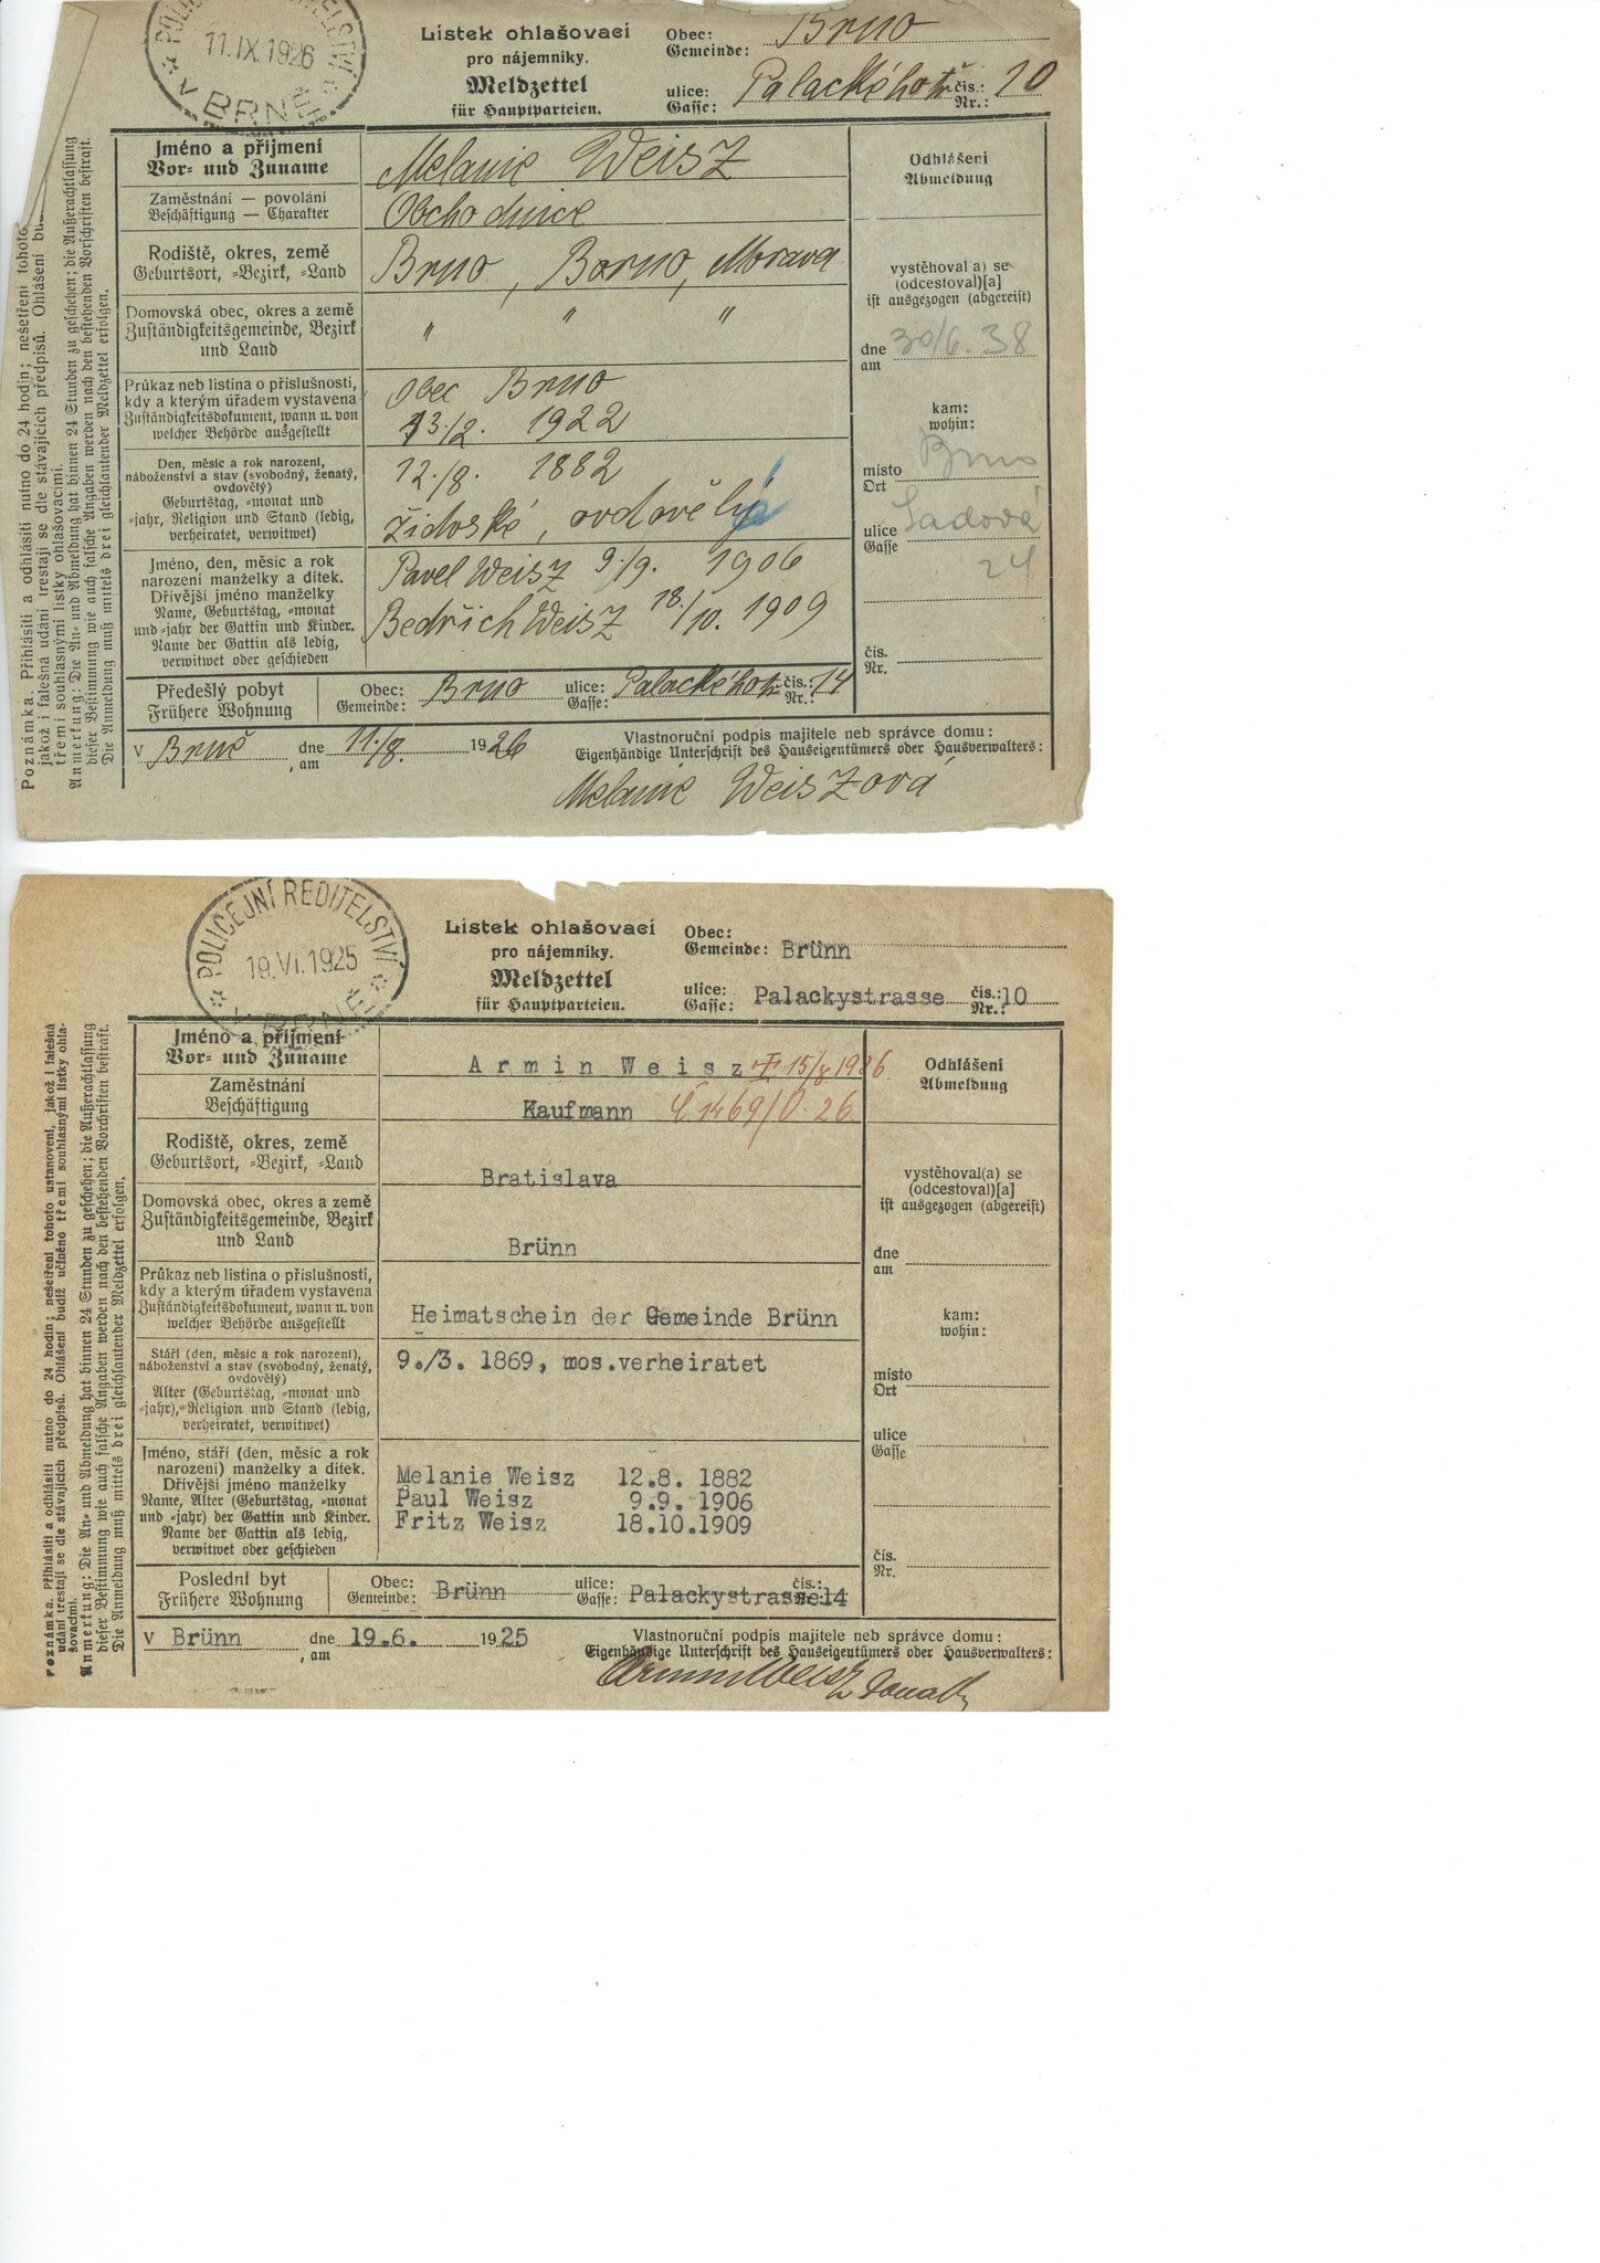 POLICEJNÍ ŘEDITELSTVÍ
11.IX.1926
V BRNĚ
Lístek ohlašovací
pro nájemníky.
Meldzettel
für Hauptparteien.
Obec: Brno
Gemeinde:
ulice: Palackého tř. čís.: 10
Gasse: Nr.:
Jméno a příjmení
Vor- und Zuname
Melanie Weisz
Zaměstnání — povolání
Beschäftigung — Charakter
Obchodnice
Rodiště, okres, země
Geburtsort, =Bezirk, =Land
Brno, Brno, Morava
Domovská obec, okres a země
Zuständigkeitsgemeinde, Bezirk
und Land
" " "
Průkaz neb listina o příslušnosti,
kdy a kterým úřadem vystavena
Zuständigkeitsdokument, wann u. von
welcher Behörde ausgestellt
obec Brno
13./2. 1922
Den, měsíc a rok narození,
náboženství a stav (svobodný, ženatý,
ovdovělý)
Geburtstag, =monat und
=jahr, Religion und Stand (ledig,
verheiratet, verwitwet)
12./8. 1882
židovské, ovdovělá
Jméno, den, měsíc a rok
narození manželky a dítek.
Dřívější jméno manželky
Name, Geburtstag, =monat
und =jahr der Gattin und Kinder.
Name der Gattin als ledig,
verwitwet oder geschieden
Pavel Weisz 9./9. 1906
Bedřich Weisz 18./10. 1909
Předešlý pobyt
Frühere Wohnung
Obec: Brno ulice: Palackého tř. čís.: 14
Gemeinde: Gasse: Nr.:
v Brně dne 11./8. 1926
, am
Vlastnoruční podpis majitele neb správce domu:
Eigenhändige Unterschrift des Hauseigentümers oder Hausverwalters:
Melanie Weiszová
Odhlášení
Abmeldung
vystěhoval a) se
(odcestoval)[a]
ist ausgezogen (abgereist)
dne 30/6. 38
am
kam:
wohin:
místo Brno
Ort
ulice Sadová
Gasse
24
čís.
Nr.
Poznámka. Přihlásiti a odhlásiti nutno do 24 hodin; nešetření tohoto
jakož i falešná udání trestají se dle stávajících předpisů. Ohlášení bu
třemi souhlasnými lístky ohlašovacími.
Anmerkung: Die An- und Abmeldung hat binnen 24 Stunden zu geschehen; die Außerachtlassung
dieser Bestimmung wie auch falsche Angaben werden nach den bestehenden Vorschriften bestraft.
Die Anmeldung muß mittels drei gleichlautender Meldzettel erfolgen.
POLICEJNÍ ŘEDITELSTVÍ
19.VI.1925
Lístek ohlašovací
pro nájemníky.
Meldzettel
für Hauptparteien.
Obec:
Gemeinde: Brünn
ulice:
Gasse: Palackystrasse čís.: 10
Nr.:
Jméno a příjmení
Vor- und Zuname
Armin Weisz † 15/8 1926
Zaměstnání
Beschäftigung
Kaufmann Č. 1469/O. 26
Rodiště, okres, země
Geburtsort, =Bezirk, =Land
Bratislava
Domovská obec, okres a země
Zuständigkeitsgemeinde, Bezirk
und Land
Brünn
Průkaz neb listina o příslušnosti,
kdy a kterým úřadem vystavena
Zuständigkeitsdokument, wann u. von
welcher Behörde ausgestellt
Heimatschein der Gemeinde Brünn
Stáří (den, měsíc a rok narození),
náboženství a stav (svobodný, ženatý,
ovdovělý)
Alter (Geburtstag, =monat und
=jahr), Religion und Stand (ledig,
verheiratet, verwitwet)
9./3. 1869, mos.verheiratet
Jméno, stáří (den, měsíc a rok
narození) manželky a dítek.
Dřívější jméno manželky
Name, Alter (Geburtstag, =monat
und =jahr) der Gattin und Kinder.
Name der Gattin als ledig,
verwitwet oder geschieden
Melanie Weisz 12.8. 1882
Paul Weisz 9.9. 1906
Fritz Weisz 18.10.1909
Poslední byt
Frühere Wohnung
Obec: ulice: čís.:
Gemeinde: Brünn Gasse: Palackystrasse14
v Brünn dne 19.6. 1925
, am
Vlastnoruční podpis majitele neb správce domu:
Eigenhändige Unterschrift des Hauseigentümers oder Hausverwalters:
Armin Weisz
Odhlášení
Abmeldung
vystěhoval(a) se
(odcestoval)[a]
ist ausgezogen (abgereist)
dne
am
kam:
wohin:
místo
Ort
ulice
Gasse
čís.
Nr.
Poznámka. Přihlásiti a odhlásiti nutno do 24 hodin; nešetření tohoto ustanovení, jakož i falešná
udání trestají se dle stávajících předpisů. Ohlášení budiž učiněno třemi souhlasnými lístky ohla-
šovacími.
Anmerkung: Die An- und Abmeldung hat binnen 24 Stunden zu geschehen; die Außerachtlassung
dieser Bestimmung wie auch falsche Angaben werden nach den bestehenden Vorschriften bestraft.
Die Anmeldung muß mittels drei gleichlautender Meldzettel erfolgen.